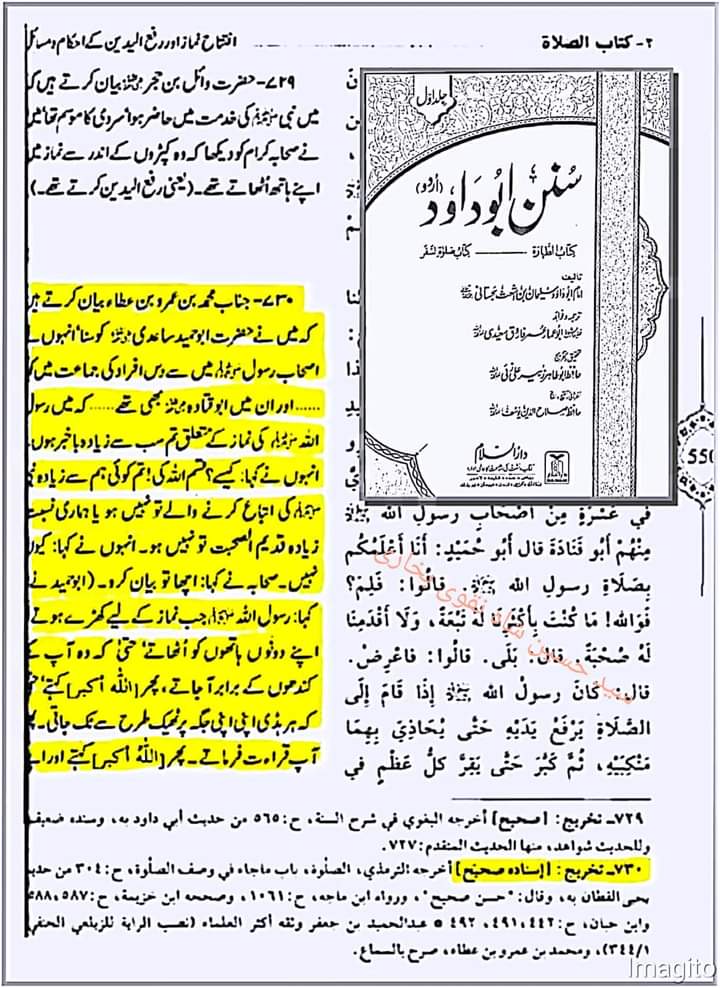 ٢- كتاب الصلاة
افتتاح نماز اور رفع الیدین کے احکام و مسائل
۷۲۹- حضرت وائل بن حجر بیان کرتے ہیں
میں نبی ﷺ کی خدمت میں حاضر ہوا سردی کا موسم تھا میں
نے صحابہ کرام کو دیکھا کہ وہ کپڑوں کے اندر سے نماز میں
اپنے ہاتھ اٹھاتے تھے۔ (یعنی رفع الیدین کرتے تھے۔)
۷۳۰- جناب محمد بن عمرو بن عطاء بیان کرتے ہیں
کہ میں نے حضرت ابوحمید ساعدی کو سنا' انہوں نے
اصحاب رسول ﷺ میں سے دس افراد کی جماعت میں کہا
...... اور ان میں ابوقتادہ بھی تھے ...... کہ میں رسول
اللہ ﷺ کی نماز کے متعلق تم سب سے زیادہ باخبر ہوں۔
انہوں نے کہا: کیسے؟ قسم اللہ کی! تم کوئی ہم سے زیادہ
ﷺ کی اتباع کرنے والے تو نہیں ہو یا ہماری نسبت
زیادہ قدیم الصحبت تو نہیں ہو۔ انہوں نے کہا: کیوں
نہیں۔ صحابہ نے کہا: اچھا تو بیان کرو۔ (ابوحمید نے)
کہا: رسول اللہ ﷺ جب نماز کے لیے کھڑے ہوتے
اپنے دونوں ہاتھوں کو اٹھاتے' حتیٰ کہ وہ آپ کے
کندھوں کے برابر آجاتے' پھر [اللہ أکبر] کہتے'
کہ ہر ہڈی اپنی اپنی جگہ پر ٹھیک طرح سے ٹک جاتی۔
آپ قراءت فرماتے۔ پھر [اللہُ أکبر] کہتے اور
جلد اول
سنن ابوداود (اردو)
کتاب الطہارۃ ——— کتاب صلاۃ السفر
تالیف
امام ابوداود سلیمان بن اشعث سجستانی
ترجمہ و فوائد
ابوعمار عمر فاروق سعیدی
تحقیق و تخریج
حافظ ابوطاہر زبیر علی زئی
حافظ صلاح الدین یوسف
دارالسلام
550
في عَشْرَةٍ مِنْ أصْحَابِ رسولِ الله ﷺ
مِنْهُمْ أبو قَتَادَةَ قال أبو حُمَيْدٍ: أنَا أَعْلَمُكُم
بِصَلَاةِ رسولِ الله ﷺ. قالُوا: فَلِمَ؟
فَوَالله! مَا كُنْتَ بِأَكْثَرِنَا لَهُ تَبْعَةً، وَلَا أقْدَمِنَا
لَهُ صُحْبَةً. قال: بَلَى. قالُوا: فاعْرِضْ.
قال: كَانَ رسولُ الله ﷺ إذَا قامَ إلَى
الصَّلَاةِ يَرْفَعُ يَدَيْهِ حَتَّى يُحَاذِيَ بِهِمَا
مَنْكِبَيْهِ، ثُمَّ كَبَّرَ حَتَّى يَقِرَّ كلُّ عَظْمٍ في
سید حسن شاہ نقوی بخاری
٧٢٩- تخريج: [صحيح] أخرجه البغوي في شرح السنة، ح: ٥٦٥ من حديث أبي داود به، وسنده ضعيف
وللحديث شواهد، منها الحديث المتقدم: ٧٢٧.
٧٣٠- تخريج: [إسناده صحيح] أخرجه الترمذي، الصلوة، باب ماجاء في وصف الصلوة، ح: ٣٠٤ من حديث
يحيى القطان به، وقال: "حسن صحيح"، ورواه ابن ماجه، ح: ١٠٦١، وصححه ابن خزيمة، ح: ٥٨٧، ٥٨٨
وابن حبان، ح: ٤٤٢، ٤٩١، ٤٩٢ * عبدالحميد بن جعفر وثقه أكثر العلماء (نصب الراية للزيلعي الحنفي
١/٣٤٤)، ومحمد بن عمرو بن عطاء، صرح بالسماع.
Imagito